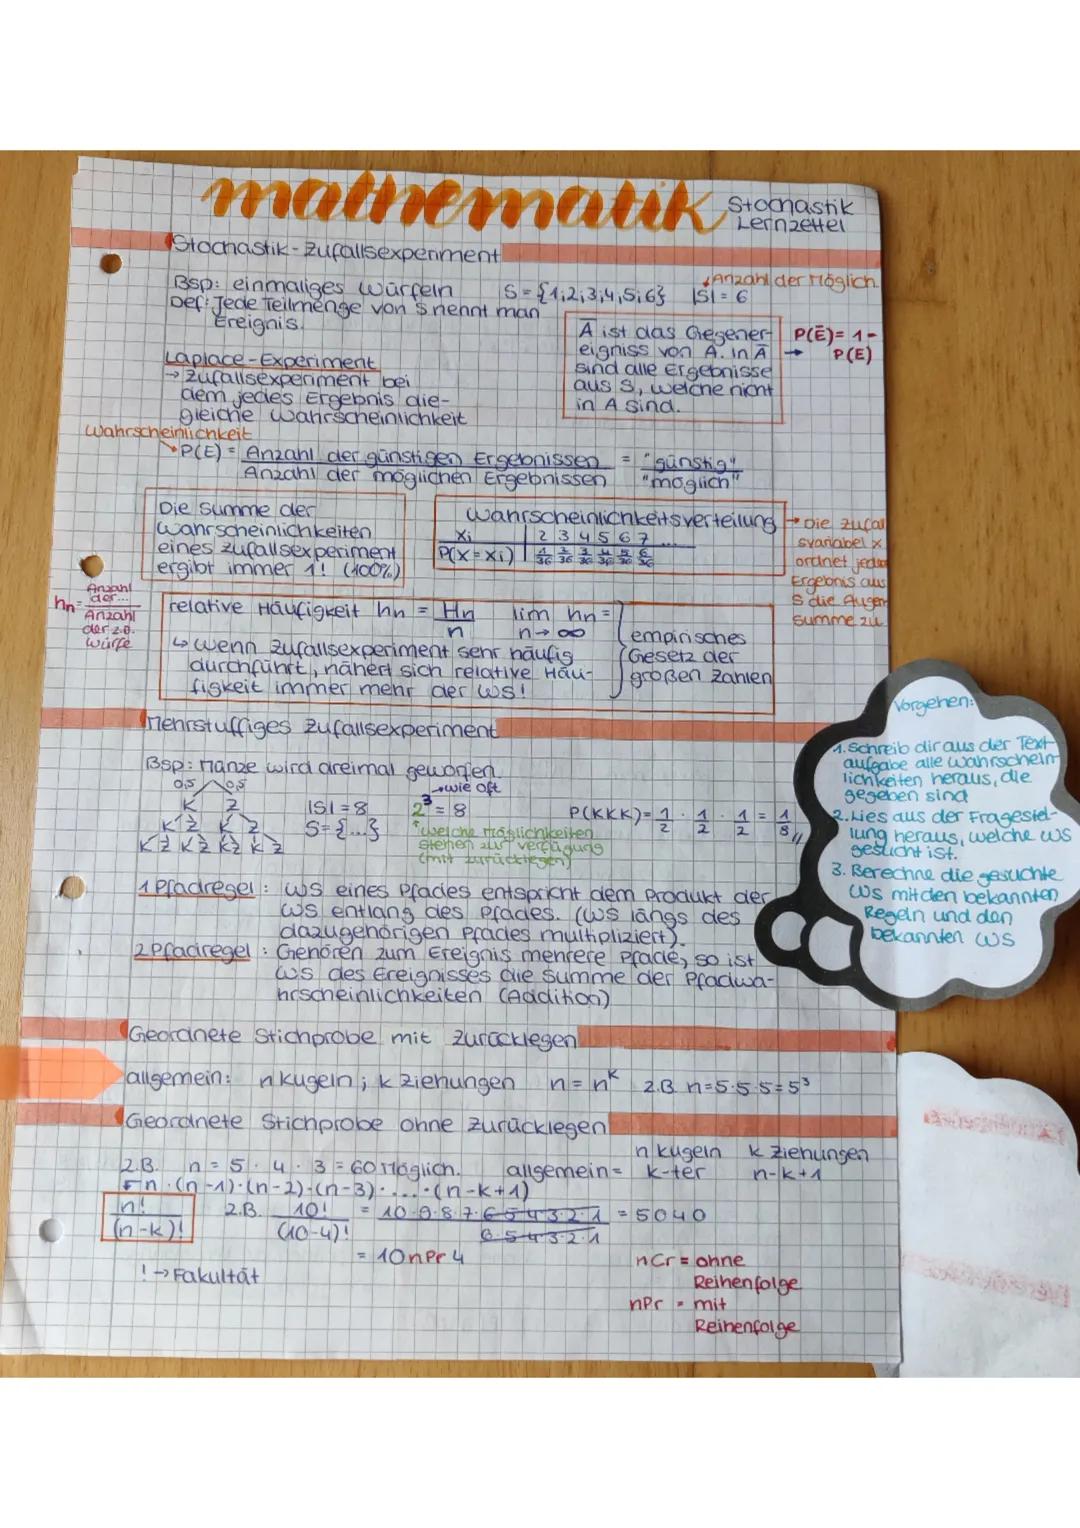 mathematik Stochastik
Lernzettel
Stochastik - Zufallsexperiment
Bsp: einmaliges Würfeln S = {1;2;3;4;5;6} |S| = 6
Anzahl der Möglich.
Def: Jede Teilmenge von S nennt man
Ereignis.
Ā ist das Gegener-
eigniss von A. In Ā
sind alle Ergebnisse
aus S, welche nicht
in A sind.
→ P(Ē) = 1 -
P(E)
Laplace - Experiment
→ Zufallsexperiment bei
dem jedes Ergebnis die-
gleiche Wahrscheinlichkeit
Wahrscheinlichkeit
P(E) = Anzahl der günstigen Ergebnissen = "günstig"
Anzahl der möglichen Ergebnissen "möglich"
Die Summe der
Wahrscheinlichkeiten
eines Zufallsexperiment
ergibt immer 1! (100%)
Wahrscheinlichkeitsverteilung
xi 2 3 4 5 6 7 ...
P(X=xi) 1/36 2/36 3/36 4/36 5/36 6/36
→ Die Zufal
svariabel x
ordnet jedem
Ergebnis aus
S die Augen
summe zu
hn = Anzahl
der...
Anzahl
der z.B.
Würfe
relative Häufigkeit hn = Hn/n lim hn =
n→∞
↳ wenn Zufallsexperiment sehr häufig
durchführt, nähert sich relative Häu-
figkeit immer mehr der WS!
empirisches
Gesetz der
großen Zahlen
Mehrstufiges Zufallsexperiment
Bsp: Münze wird dreimal geworfen
0,5 0,5
K Z
K Z K Z
K Z K Z K Z K Z
|S| = 8
S = {...}
→wie oft
2³ = 8
welche Möglichkeiten
stehen zur verfügung
(mit zurücklegen)
P(KKK) = 1/2 · 1/2 · 1/2 = 1/8
1 Pfadregel : WS eines Pfades entspricht dem Produkt der
WS entlang des Pfades. (WS längs des
dazugehörigen Pfades multipliziert).
2 Pfadregel : Gehören zum Ereignis mehrere Pfade, so ist
WS des Ereignisses die Summe der Pfadwa-
hrscheinlichkeiten (Addition)
Vorgehen:
1. Schreib dir aus der Text-
aufgabe alle Wahrschein-
lichkeiten heraus, die
gegeben sind
2. Lies aus der Fragestel-
lung heraus, welche WS
gesucht ist.
3. Berechne die gesuchte
WS mit den bekannten
Regeln und den
bekannten WS
Geordnete Stichprobe mit zurücklegen
allgemein: n Kugeln ; k Ziehungen n = n^k z.B n=5·5·5=5³
Geordnete Stichprobe ohne zurücklegen
n Kugeln k Ziehungen
z.B. n = 5 · 4 · 3 = 60 Möglich. allgemein = k-ter n-k+1
n · (n-1)·(n-2)·(n-3)· ... ·(n-k+1)
n!/(n-k)! z.B. 10!/(10-4)! = 10·9·8·7·6·5·4·3·2·1/6·5·4·3·2·1 = 5040
= 10 nPr 4
! → Fakultät
nCr = ohne
Reihenfolge
nPr = mit
Reihenfolge